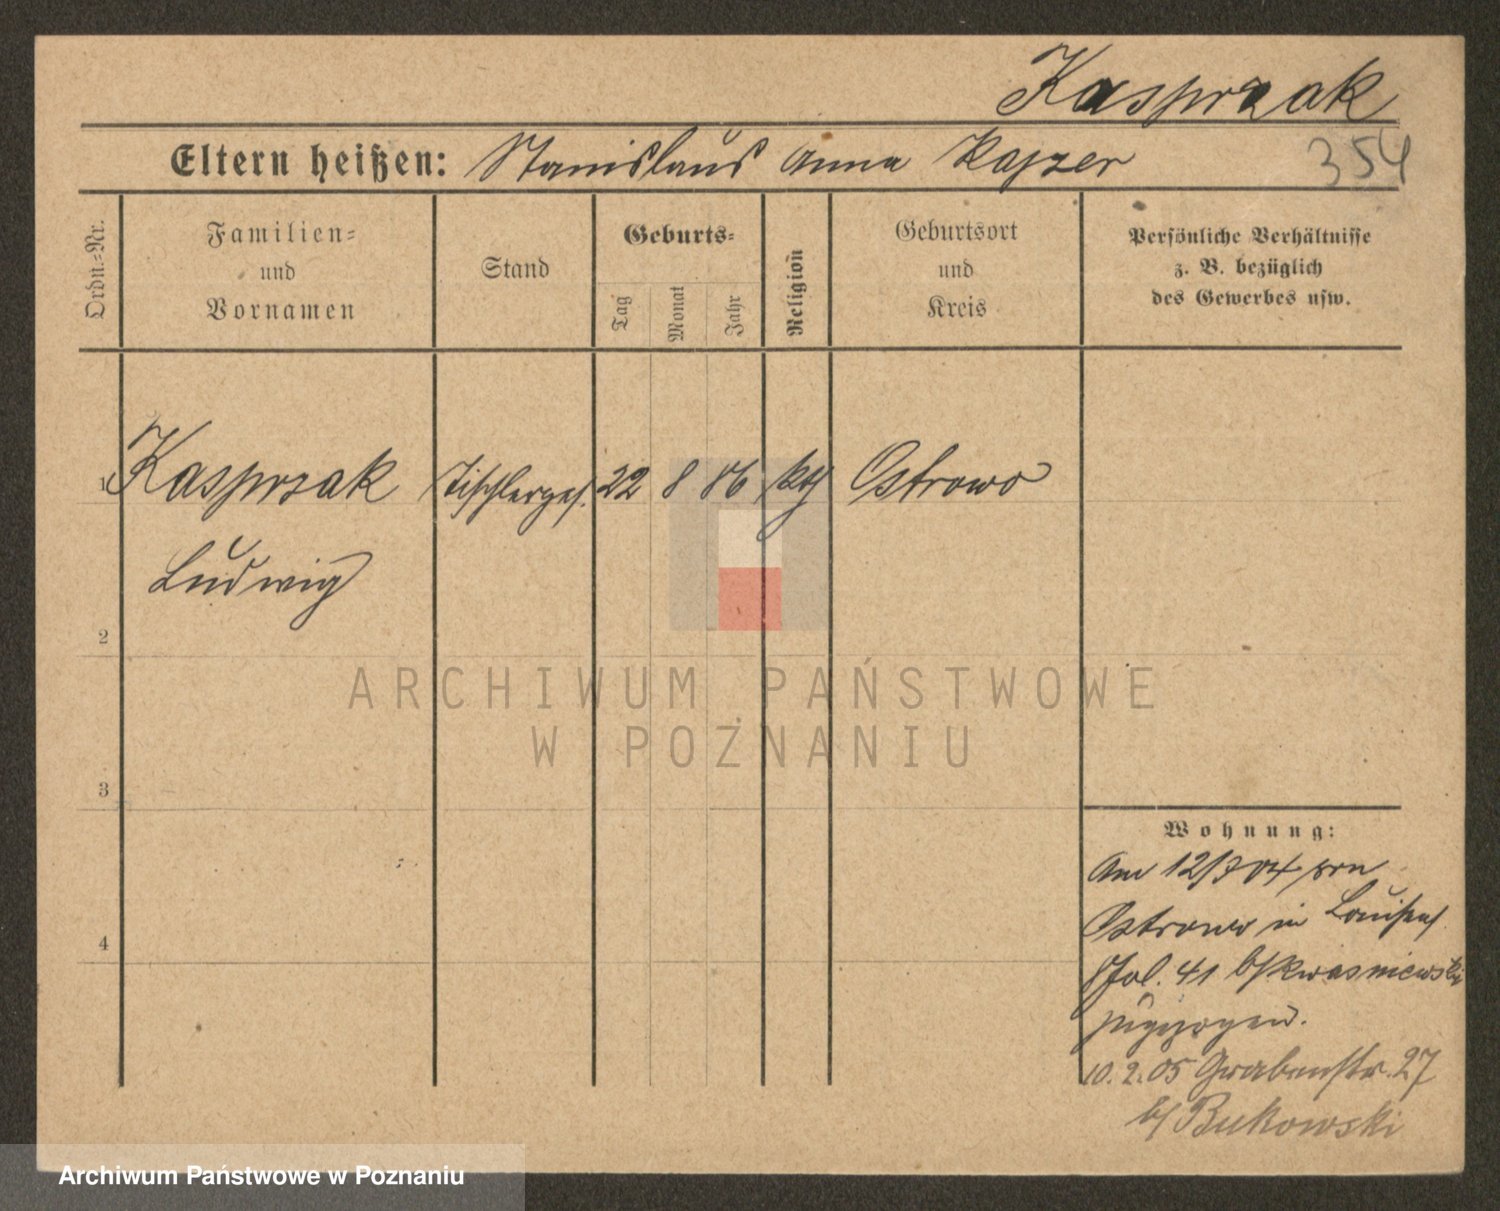 Kasprzak
Eltern heißen: Stanislaus Anna Kajzer
354
Ordn.-Nr.
Familien-
und
Vornamen
Stand
Geburts-
Tag
Monat
Jahr
Religion
Geburtsort
und
Kreis
Persönliche Verhältnisse
z. B. bezüglich
des Gewerbes usw.
1 Kasprzak Tischlerges. 22 8 86 kth Ostrowo
Ludwig
2
3
4
Wohnung:
Am 12/7 04 von
Ostrowo in Louisenf.
41 b/ Kwasniewski
zugezogen.
10. 2. 05 Grabenstr. 27
b/ Bukowski
ARCHIWUM PAŃSTWOWE
W POZNANIU
Archiwum Państwowe w Poznaniu